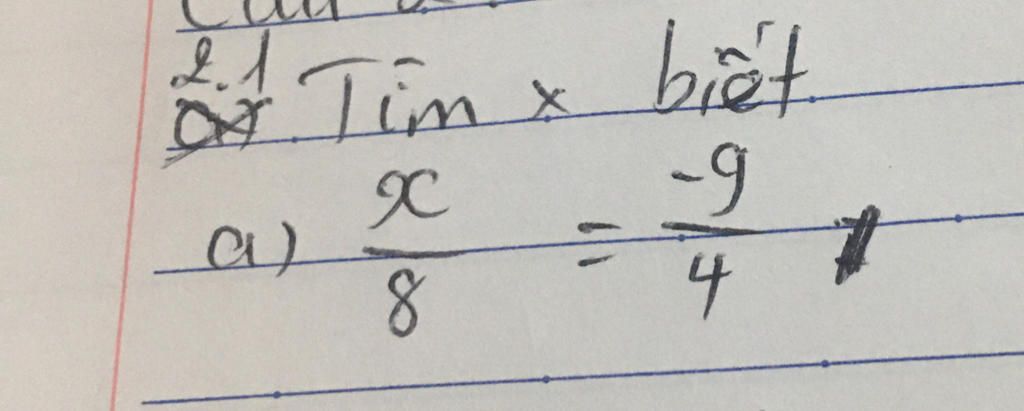 2.1 Tìm x biết
a) x/8 = -9/4